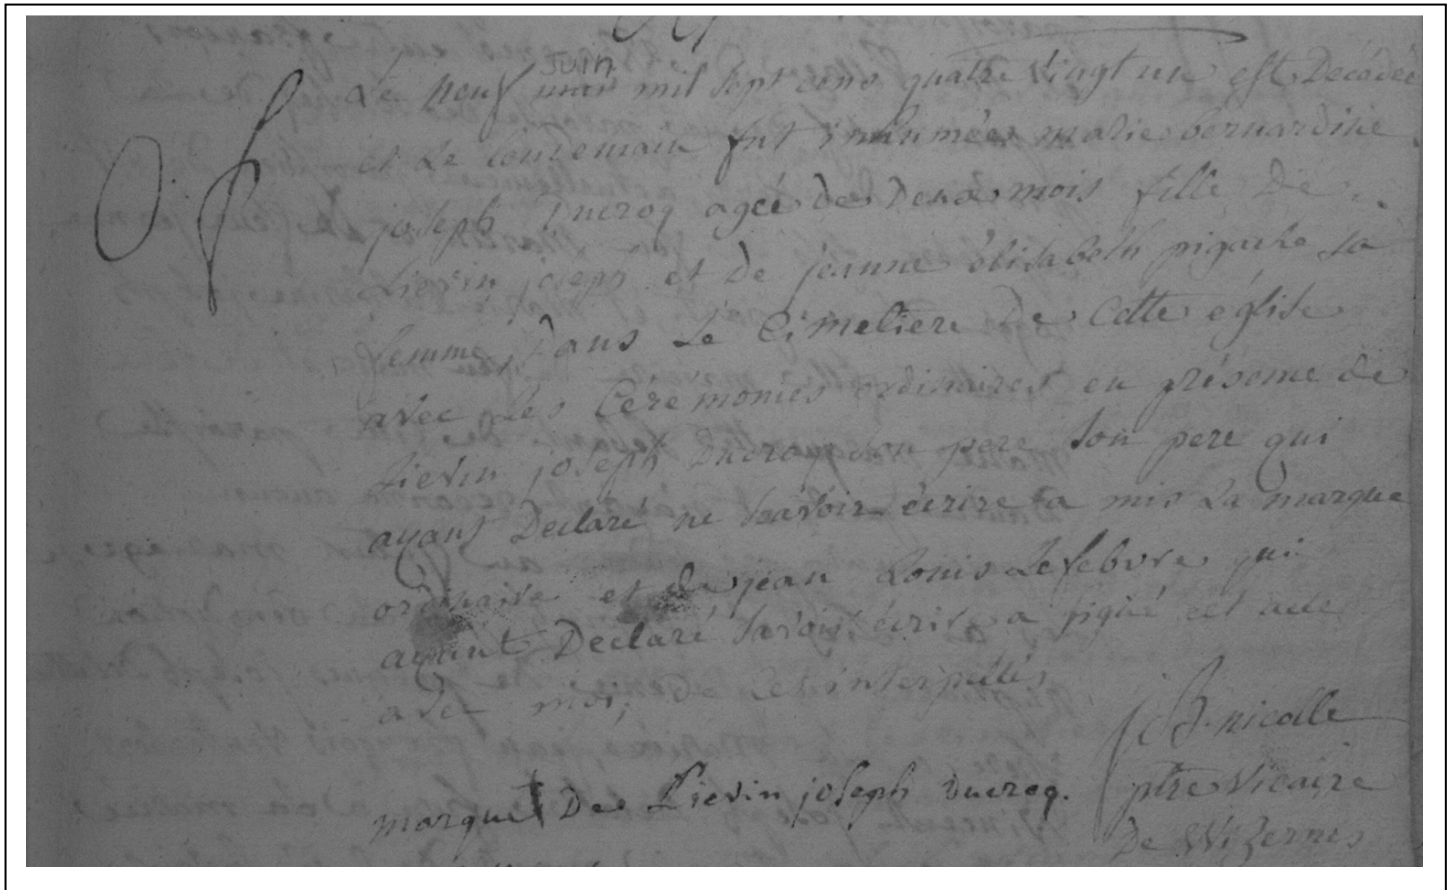 Juin
Le neuf mai mil sept cens quatre vingt un est Decedée
et Le Lendemain fut inhumée marie bernardine
joseph Ducrocq ageé de Deux mois fille De
Lievin joseph et de jeanne élisabeth pigache sa
femme, Dans Le Cimetiere De Cette église
avec Les Ceremonies ordinaires en présence de
Lievin joseph Ducrocq son pere qui
ayant Declaré ne savoir écrire a mis sa marque
ordinaire et de jean Louis Lefebvre qui
ayant Declaré savoir écrire a signé cet acte
avec moi, de ce interpellés
J B. nicolle
marque De Lievin joseph ducrocq. ptre Vicaire
De Wizernes